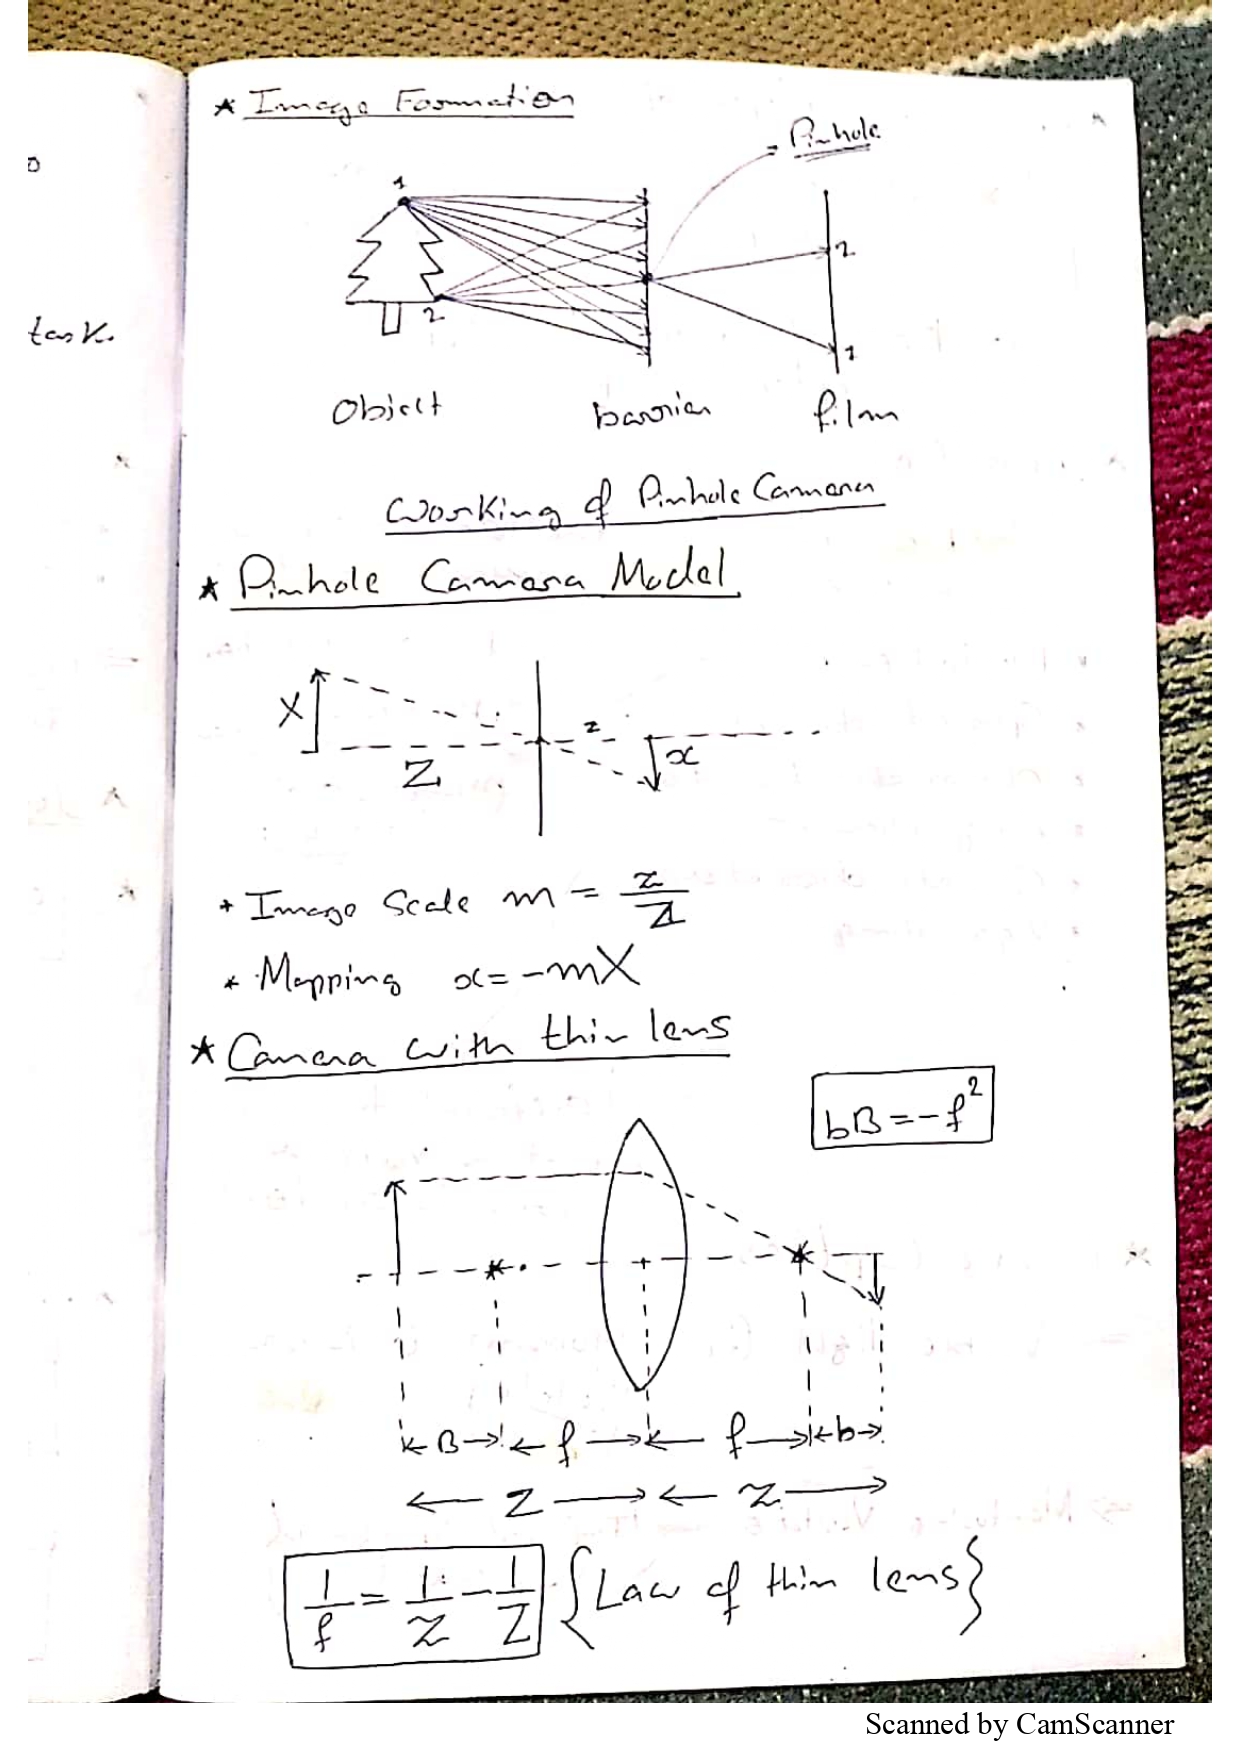 ★ Image Formation
Pinhole
1
2
2
1
Object barrier film
Working of Pinhole Camera
★ Pinhole Camera Model
X
Z
z
x
* Image Scale m = z/Z
* Mapping x = -mX
★ Camera with thin lens
bB = -f²
B f f b
Z z
1/f = 1/z - 1/Z {Law of thin lens}
task.
Scanned by CamScanner